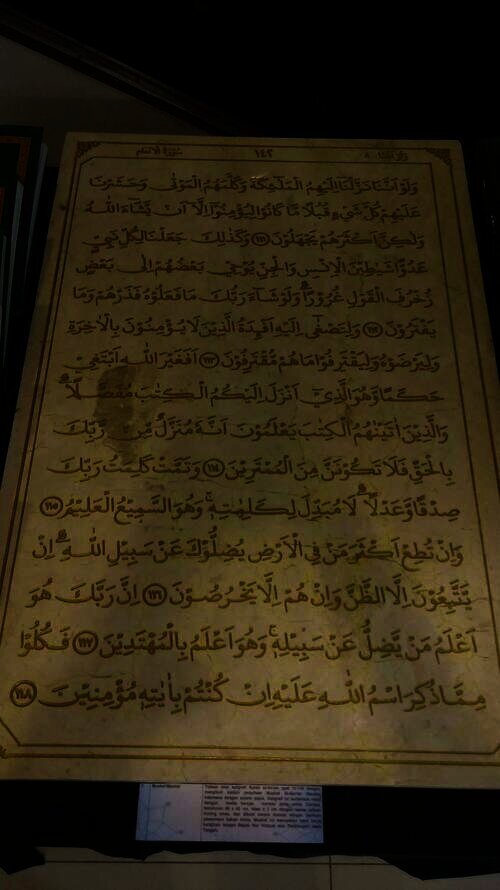 سورة الانعام ١٤٢ ولو اننا ٨
وَلَوْ اَنَّنَا نَزَّلْنَآ اِلَيْهِمُ الْمَلٰۤىِٕكَةَ وَكَلَّمَهُمُ الْمَوْتٰى وَحَشَرْنَا
عَلَيْهِمْ كُلَّ شَيْءٍ قُبُلًا مَّا كَانُوْا لِيُؤْمِنُوْٓا اِلَّآ اَنْ يَّشَاۤءَ اللّٰهُ
وَلٰكِنَّ اَكْثَرَهُمْ يَجْهَلُوْنَ ١١١ وَكَذٰلِكَ جَعَلْنَا لِكُلِّ نَبِيٍّ
عَدُوًّا شَيٰطِيْنَ الْاِنْسِ وَالْجِنِّ يُوْحِيْ بَعْضُهُمْ اِلٰى بَعْضٍ
زُخْرُفَ الْقَوْلِ غُرُوْرًا ۗوَلَوْ شَاۤءَ رَبُّكَ مَا فَعَلُوْهُ فَذَرْهُمْ وَمَا
يَفْتَرُوْنَ ١١٢ وَلِتَصْغٰٓى اِلَيْهِ اَفْـِٕدَةُ الَّذِيْنَ لَا يُؤْمِنُوْنَ بِالْاٰخِرَةِ
وَلِيَرْضَوْهُ وَلِيَقْتَرِفُوْا مَا هُمْ مُّقْتَرِفُوْنَ ١١٣ اَفَغَيْرَ اللّٰهِ اَبْتَغِيْ
حَكَمًا وَّهُوَ الَّذِيْٓ اَنْزَلَ اِلَيْكُمُ الْكِتٰبَ مُفَصَّلًا ۗ
وَالَّذِيْنَ اٰتَيْنٰهُمُ الْكِتٰبَ يَعْلَمُوْنَ اَنَّهٗ مُنَزَّلٌ مِّنْ رَّبِّكَ
بِالْحَقِّ فَلَا تَكُوْنَنَّ مِنَ الْمُمْتَرِيْنَ ١١٤ وَتَمَّتْ كَلِمَتُ رَبِّكَ
صِدْقًا وَّعَدْلًا ۗ لَا مُبَدِّلَ لِكَلِمٰتِهٖ ۚ وَهُوَ السَّمِيْعُ الْعَلِيْمُ ١١٥
وَاِنْ تُطِعْ اَكْثَرَ مَنْ فِى الْاَرْضِ يُضِلُّوْكَ عَنْ سَبِيْلِ اللّٰهِ ۗ اِنْ
يَّتَّبِعُوْنَ اِلَّا الظَّنَّ وَاِنْ هُمْ اِلَّا يَخْرُصُوْنَ ١١٦ اِنَّ رَبَّكَ هُوَ
اَعْلَمُ مَنْ يَّضِلُّ عَنْ سَبِيْلِهٖ ۚ وَهُوَ اَعْلَمُ بِالْمُهْتَدِيْنَ ١١٧ فَكُلُوْا
مِمَّا ذُكِرَ اسْمُ اللّٰهِ عَلَيْهِ اِنْ كُنْتُمْ بِاٰيٰتِهٖ مُؤْمِنِيْنَ ١١٨